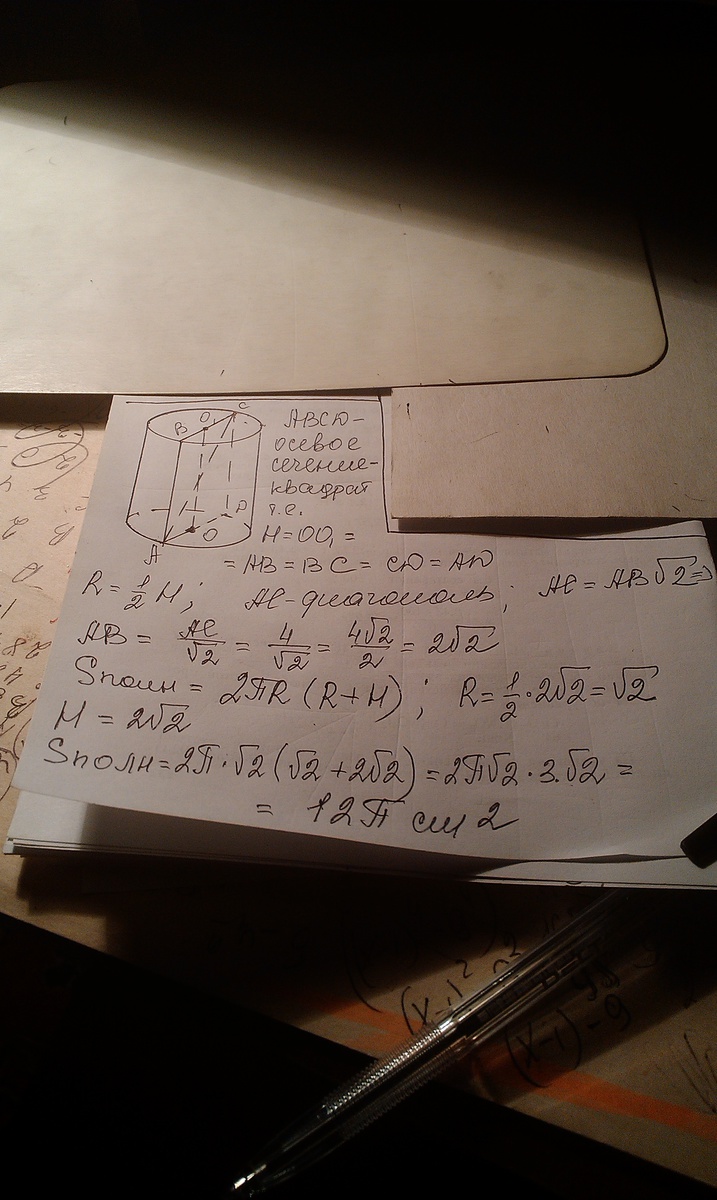 C
O₁
B
D
O
A
ABCD-
осевое
сечение-
квадрат
т.е.
H=OO₁=
=AB=BC=CD=AD
R=1/2 H; AC-диагональ; AC=AB√2⇒
AB= AC/√2 = 4/√2 = 4√2/2 = 2√2
Sполн = 2πR (R+H); R=1/2·2√2=√2
H = 2√2
Sполн=2π·√2(√2+2√2)=2π√2·3·√2=
= 12π см2
(x-1)²
(x-1)-9